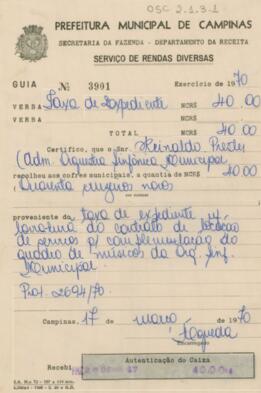 OSC 2.1.3-1
PREFEITURA MUNICIPAL DE CAMPINAS
SECRETARIA DA FAZENDA - DEPARTAMENTO DA RECEITA
SERVIÇO DE RENDAS DIVERSAS
GUIA Nº 3901 Exercício de 1970
VERBA Taxa de Expediente NCR$ 40.00
VERBA NCR$
TOTAL NCR$ 40.00
Certifico, que o Snr. Reinaldo
(Adm. Orquestra Sinfônica Municipal
recolheu aos cofres municipais, a quantia de NCR$ 40.00
(Quarenta cruzeiros novos
proveniente da taxa de expediente p/
lavratura do contrato de locação
de serviços p/ complementação do
quadro de músicos da Orq. Sinf.
Municipal.
Prot. 2694/70.
Campinas, 17 de março de 1970
Encarregado
Recebi Autenticação do Caixa
40.00